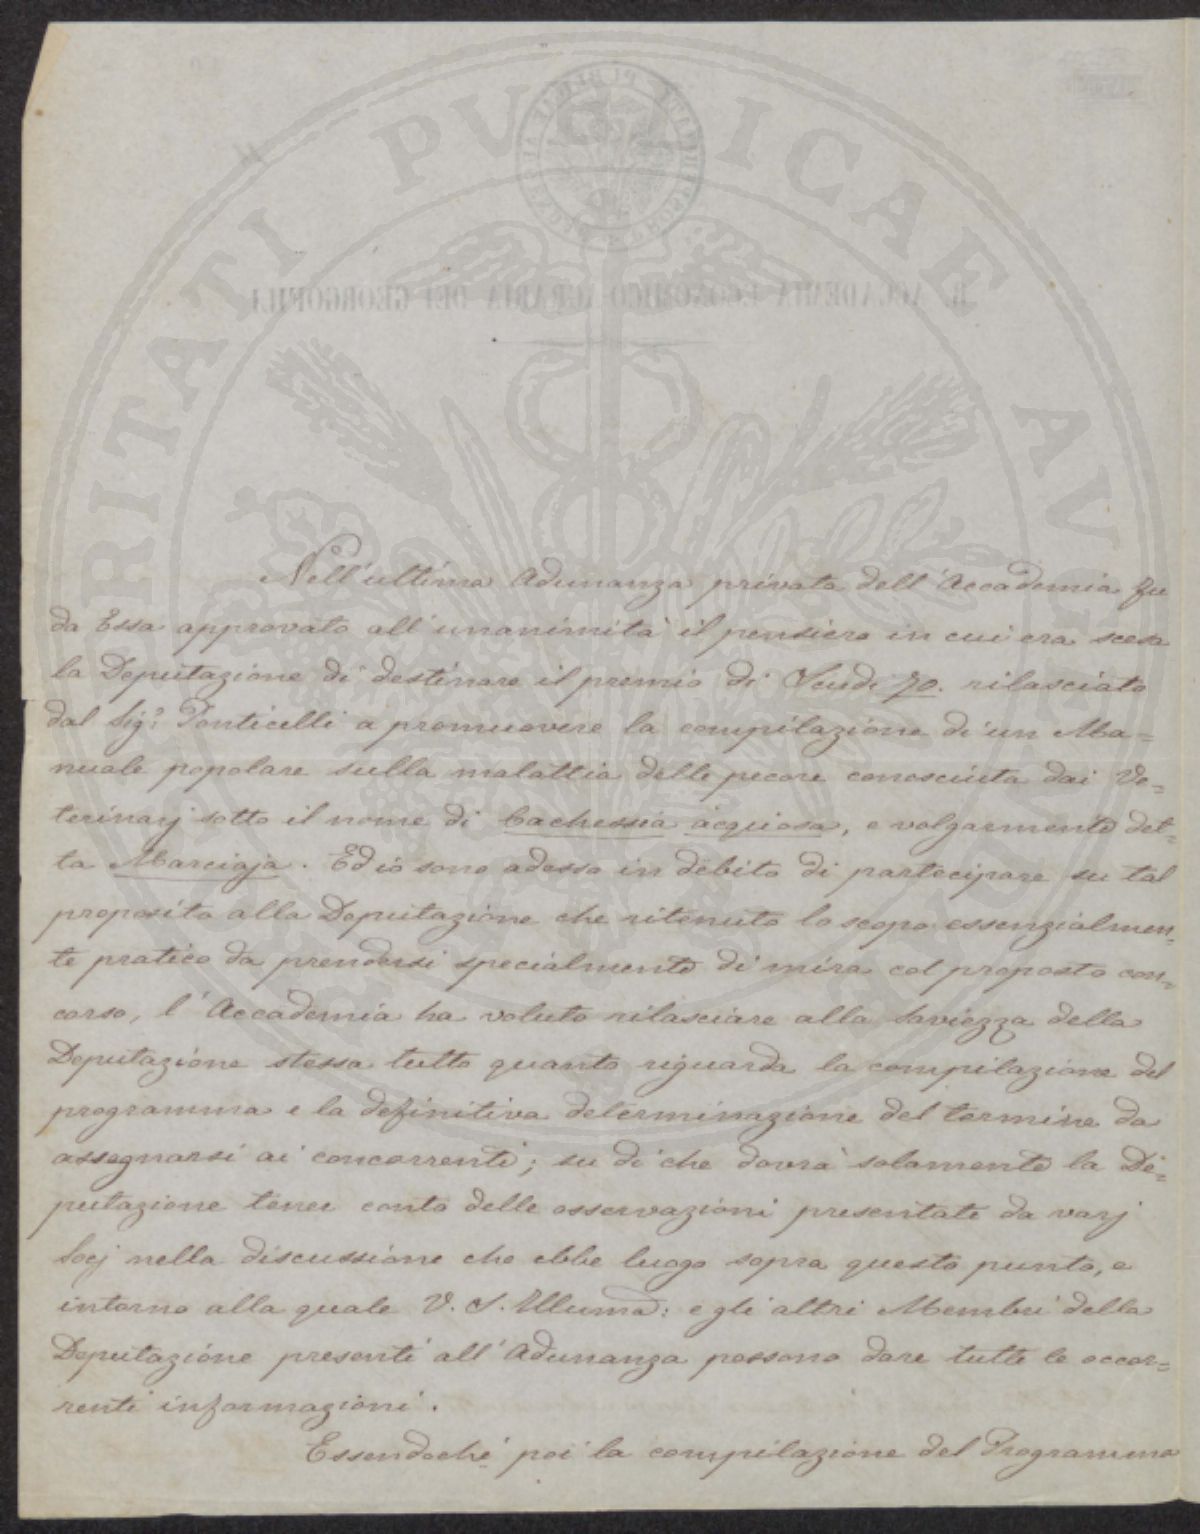 PROSPERITATI PVBLICAE AVGENDAE
R. ACCADEMIA ECONOMICO-AGRARIA DEI GEORGOFILI
Nell'ultima Adunanza privata dell'Accademia fu
da Essa approvato all'unanimità il pensiero in cui era scesa
la Deputazione di destinare il premio di Scudi 70. rilasciato
dal Sigr. Ponticelli a promuovere la compilazione di un Ma=
nuale popolare sulla malattia delle pecore conosciuta dai Ve=
terinarj sotto il nome di Cachessia acquosa, e volgarmente det=
ta Marciaja. Ed io sono adesso in debito di partecipare su tal
proposito alla Deputazione che ritenuto lo scopo essenzialmen=
te pratico da prendersi specialmente di mira col proposto con=
corso, l'Accademia ha voluto rilasciare alla Saviezza della
Deputazione stessa tutto quanto riguarda la compilazione del
programma e la definitiva determinazione del termine da
assegnarsi ai concorrenti; su di che dovrà solamente la De=
putazione tener conto delle osservazioni presentate da varj
Socj nella discussione che ebbe luogo sopra questo punto, e
intorno alla quale V. S. Illuma: e gli altri Membri della
Deputazione presenti all'Adunanza possono dare tutte le occor=
renti informazioni.
Essendochè poi la compilazione del Programma